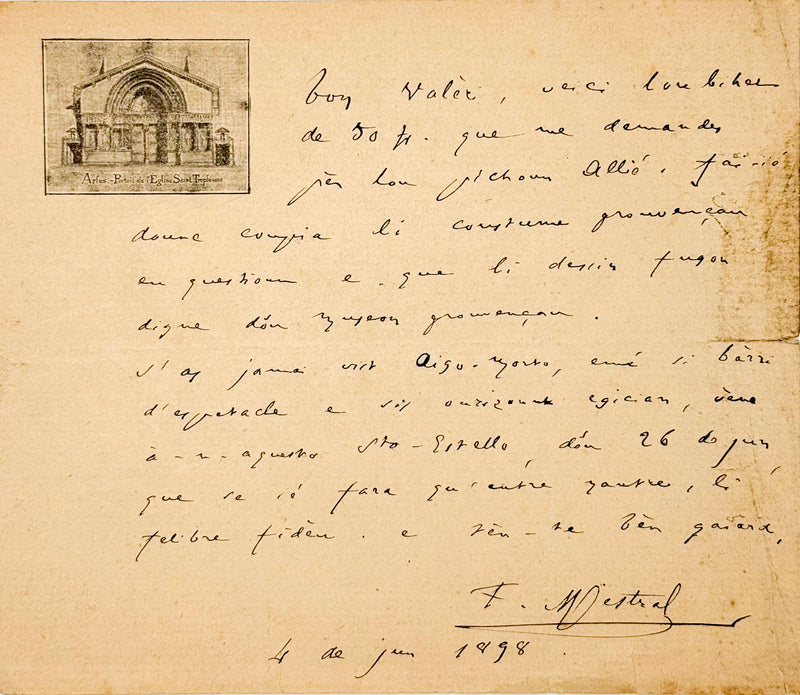 Arles - Portail de l'Eglise Saint Trophime
bon Valèri, veici lou bihet
de 50 fr. que me demandes
pèr lou pichoun Allié. Fai-ié
dounc coupia li coustume prouvençau
en questioun e que li dessin fugon
digne dóu Museon prouvençau.
S'as jamai vist Aigo-Morto, emé si bàrri
d'espetacle e sis ourizount egician, vène
à-n-aquesto Sto-Estello, dóu 26 de jun,
que se ié fara qu'entre nautre, li
felibre fidèu. e tèn-te bèn gaiard,
F. Mistral
4 de jun 1898.